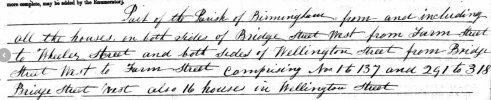 more complete, may be added by the Enumerator.)
Part of the Parish of Birmingham from and including
all the houses in both sides of Bridge Street West from Farm Street
to Wheeler Street and both sides of Wellington Street from Bridge
Street West to Farm Street Comprising Nos 1 to 137 and 291 to 318
Bridge Street West also 16 houses in Wellington Street